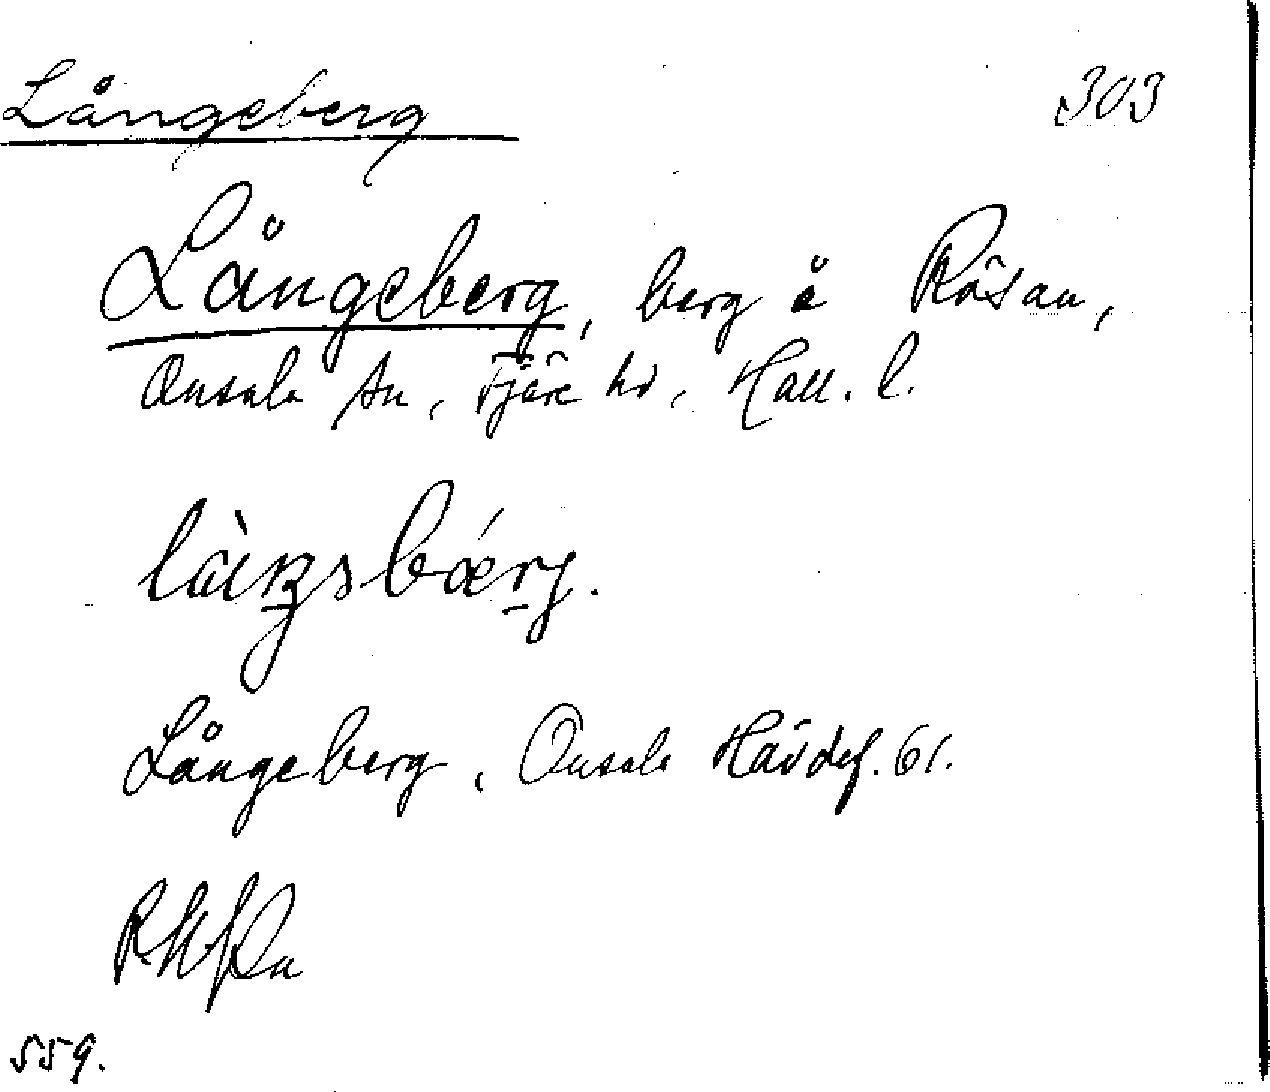 Långeberg 303
Långeberg, berg å Råsan,
Onsala sn, Fjäre hd, Hall. l.
Långeberg, Onsala Hävdef. 61.
559.